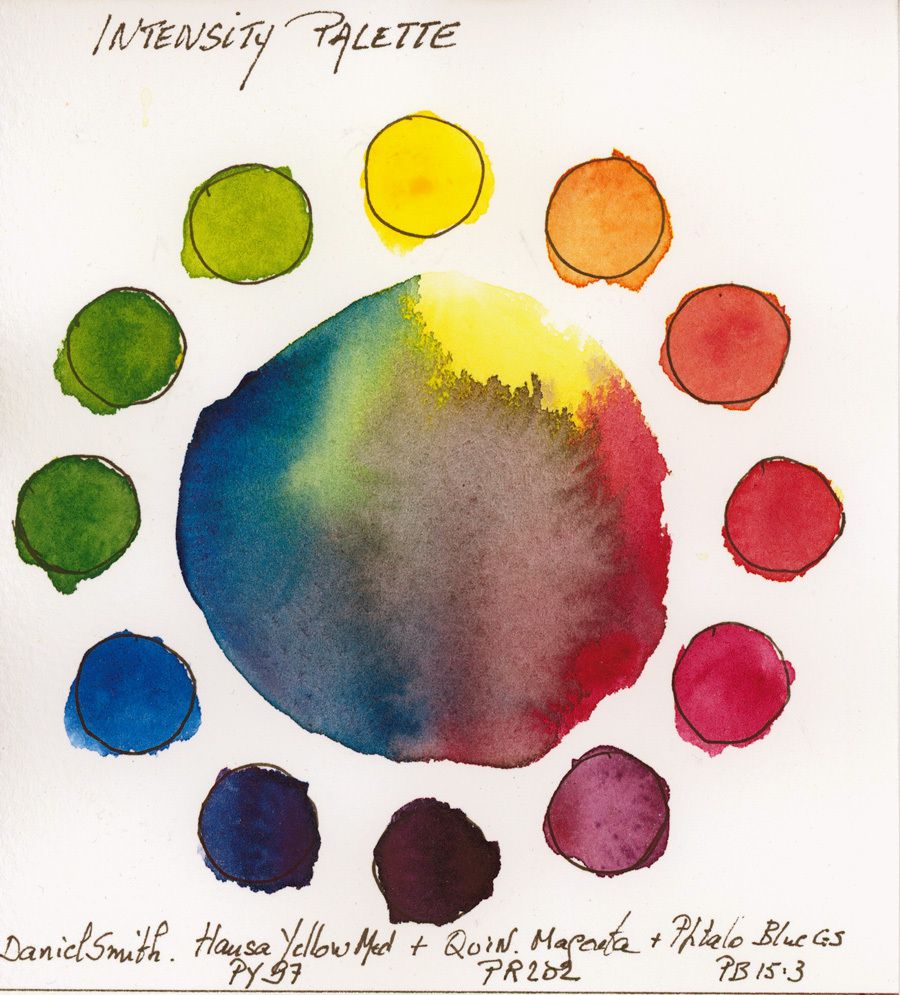 INTENSITY PALETTE
Daniel Smith. Hansa Yellow Med + QuiN. Magenta + Phtalo Blue GS
PY 97 PR202 PB 15:3